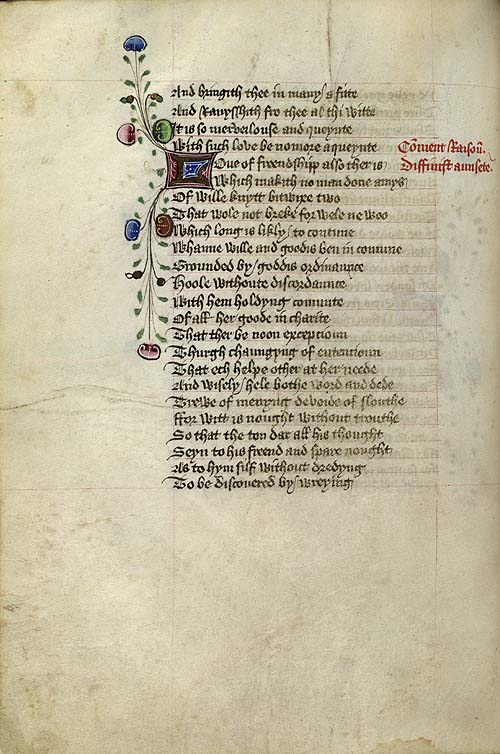 And bringith thee in many a fitte
And Ravysshith fro thee al thi witte
It is so merveilouse and queynte
With such love be nomore aqueynte
Cōment Raisoñ
Diffinist aunsete
Love of freendshipp also ther is
Which makith no man done amys
Of wille knytt bitwixe two
That wole not breke for wele ne woo
Which long is likly to contune
Whanne wille and goodis ben in comune
Grounded by goddis ordinaunce
Hoole withoute discordaunce
With hem holdyng comunte
Of all her goode in charite
That ther be noon exceptioun
Thurgh chaungyng of entencioun
That ech helpe other at her neede
And wisely hele bothe word and dede
Trewe of menyng devoide of slouthe
ffor witt is nought without trouthe
So that the ton dar all his thought
Seyn to his freend and spare nought
As to hym silf without dredyng
To be discovered by wreying